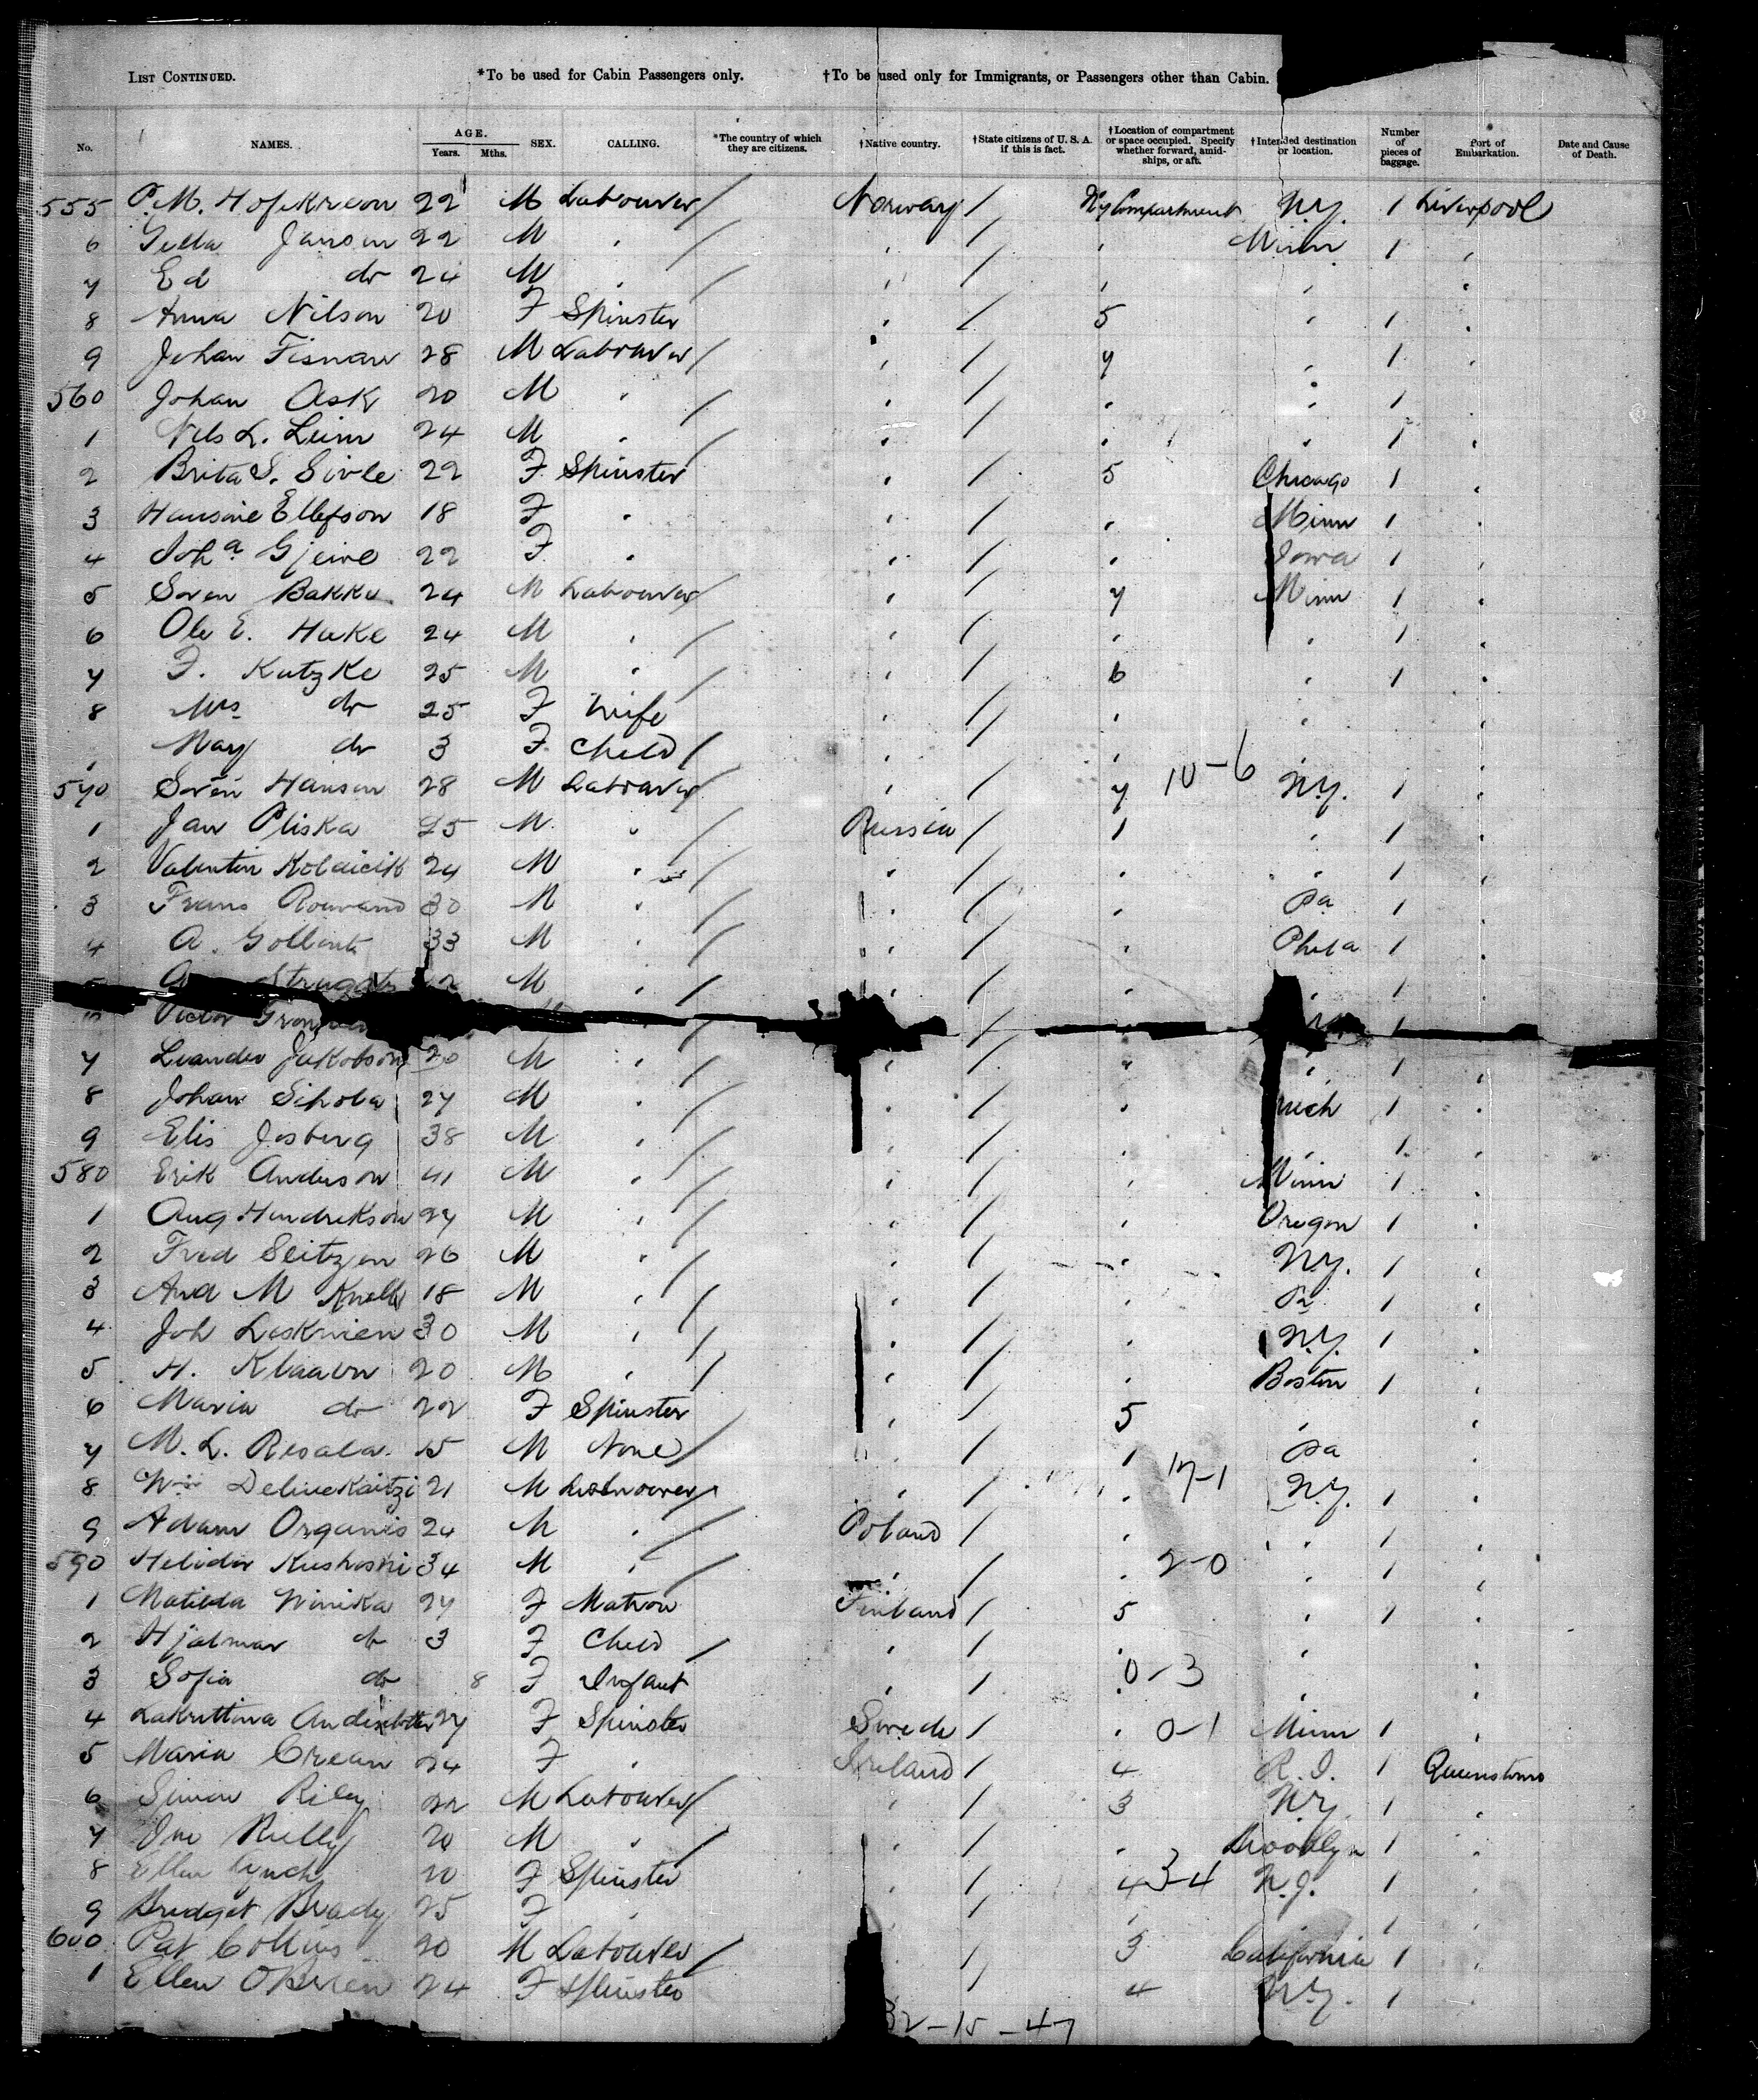 LIST CONTINUED. *To be used for Cabin Passengers only. †To be used only for Immigrants, or Passengers other than Cabin.
No. NAMES. AGE. Years. Mths. SEX. CALLING. *The country of which they are citizens. †Native country. †State citizens of U. S. A. if this is fact. †Location of compartment or space occupied. Specify whether forward, amidships, or aft. †Intended destination or location. Number of pieces of baggage. Port of Embarkation. Date and Cause of Death.
555 P. M. 22 M Labourer / Norway / Compartment N.Y. 1 Liverpool
6 22 M " / " / " Minn 1 "
7 Ed do 24 M " / " / " " "
8 Anna Nilson 20 F Spinster " / 5 " 1 "
9 Johan 28 M Labourer / " / 7 " 1 "
560 Johan Ask 20 M " / " / " " 1
1 Nils L. 24 M " / " / " " 1 "
2 Brita S. Sivle 22 F Spinster " / 5 Chicago 1 "
3 Hansine Ellefson 18 F " " / " Minn 1 "
4 Joha Gjeire 22 F " " / " Iowa 1 "
5 Soren Bakke 24 M Labourer / " / 7 Minn 1 "
6 Ole E. Hake 24 M " / " / " " 1 "
7 F. Katzke 25 M " / " / 6 " 1 "
8 Mrs do 25 F Wife " / " " "
" May do 3 F Child / " / " " "
570 Soren Hanson 28 M Labourer / " / 7 10-6 N.Y. 1 "
1 Jan Pliska 25 M " / Russia / 1 " 1 "
2 Valentin 24 M " / " / " " 1 "
3 Frans 30 M " / " / " Pa 1 "
4 A. 33 M " / " / " Phila 1 "
5 M " / " / " " 1 "
Victor / 1
7 Leander Jakobson 20 M " / " / " " 1 "
8 Johan 27 M " / " / " Mich 1 "
9 Elis 38 M " / " / " " 1 "
580 Erik Anderson 41 M " / " / " Minn 1 "
1 Aug Hendrikson 27 M " / " / " Oregon 1 "
2 Fred Seitzen 26 M " / " / " N.Y. 1 "
3 And M 18 M " / " / " Pa 1 "
4 Joh 30 M " / " / " N.Y. 1 "
5 H. Klaavn 20 M " / " / " Boston 1 "
6 Maria do 22 F Spinster " / 5 " "
7 M. L. Resala 15 M None / " / 1 Pa "
8 21 M Labourer / " / " 17-1 N.Y. 1 "
9 Adam Organis 24 M " / Poland / " " 1 "
590 34 M " / " / " 2-0 " 1 "
1 Matilda 27 F Matron Finland / 5 " 1 "
2 Hjalmar do 3 F Child / " / " " "
3 Sofia do 8 F Infant " / " 0-3 " "
4 27 F Spinster Swede / " 0-1 Minn 1 "
5 Maria Crean 24 F " Ireland / 4 R. I. 1 Queenstown
6 Simon Riley 22 M Labourer / " / 3 N.Y. 1 "
7 Jno Reilly 20 M " / " / " Brooklyn 1 "
8 Ellen Lynch 20 F Spinster " / 4 3-4 N.J. 1 "
9 Bridget Brady 25 F " " / " " 1 "
600 Pat Collins 20 M Labourer / / 3 California 1 "
1 Ellen O'Brien 24 F Spinster / 4 N.Y. 1 "
32-15-47